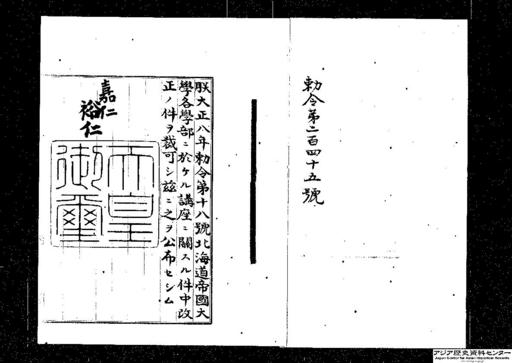 勅令第二百四十五號
朕大正八年勅令第十八號北海道帝國大
學各學部ニ於ケル講座ニ關スル件中改
正ノ件ヲ裁可シ茲ニ之ヲ公布セシム
嘉仁
裕仁
天皇
御璽
アジア歴史資料センター
Japan Center for Asian Historical Records